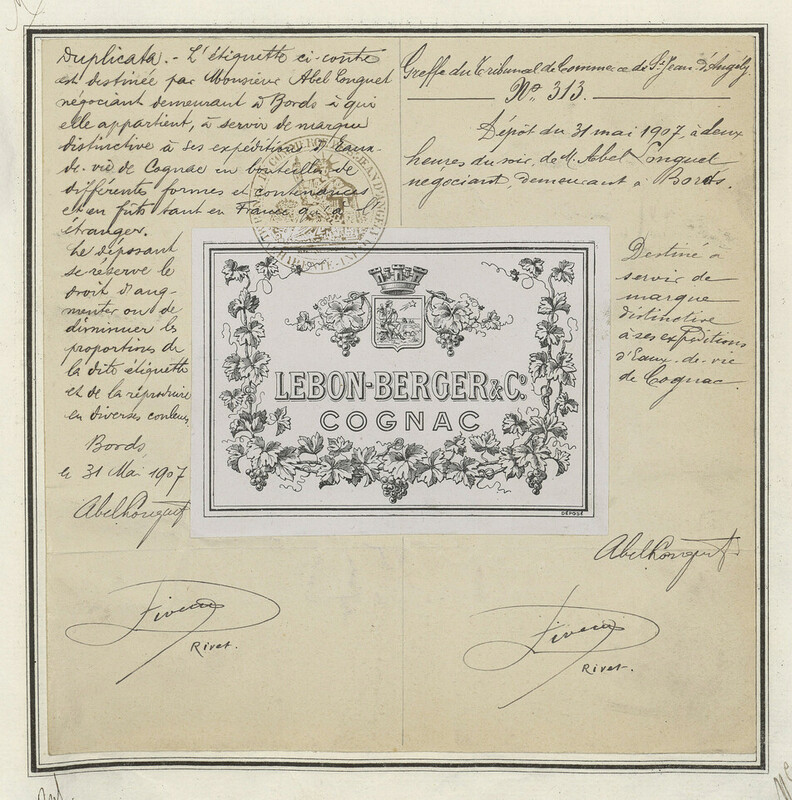 Duplicata.- L'étiquette ci-contre
est destinée par Monsieur Abel Longuet
négociant demeurant à Bords à qui
elle appartient, à servir de marque
distinctive à ses expéditions d'Eaux-
de-vie de Cognac en bouteilles de
différente formes et contenances
et en fûts tant en France qu'à l'
étranger.
Le déposant
se réserve le
droit d'aug-
menter ou de
diminuer les
proportions de
la dite étiquette
et de la réproduire
en diverses couleurs
Bords
le 31 Mai 1907
Abel Longuet
Rivet.
Greffe du Tribunal de Commerce de St Jean-d'Angély
No 313.
Dépôt du 31 mai 1907, à deux
heures du soir, de M. Abel Longuet
négociant, demeurant à Bords.
LEBON-BERGER & Co.
COGNAC
DÉPOSÉ
Destiné à
servir de
marque
distinctive
à ses expéditions
d'Eaux-de-vie
de Cognac.
Abel Longuet
Rivet.